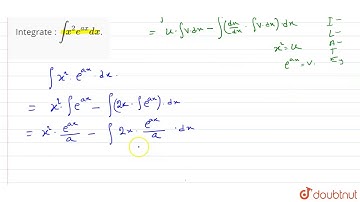 Integrate : ∫x²eᵃˣdx.
= u·∫v·dx − ∫(du/dx · ∫v·dx)·dx
I −
L −
A −
T
E
x² = u
eᵃˣ = v.
∫x²·eᵃˣ·dx.
= x²·∫eᵃˣ − ∫(2x·∫eᵃˣ)·dx
= x²·eᵃˣ/a − ∫2x·eᵃˣ/a ·dx
doubtnut